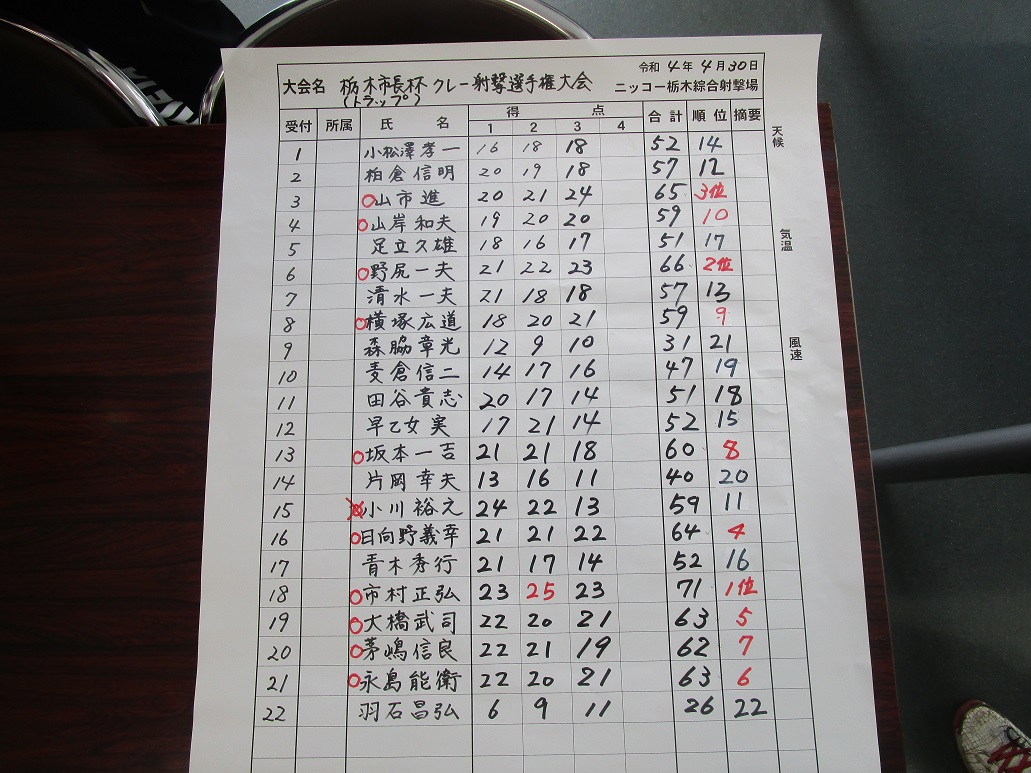 令和 4年 4月30日
大会名 栃木市長杯 クレー射撃選手権大会 ニッコー栃木綜合射撃場
(トラップ)
受付 所属 氏 名 得 点 合計 順位 摘要
1 2 3 4
天候
1 小松澤孝一 16 18 18 52 14
2 柏倉信明 20 19 18 57 12
3 ○山市進 20 21 24 65 3位
4 ○山岸和夫 19 20 20 59 10
気温
5 足立久雄 18 16 17 51 17
6 ○野尻一夫 21 22 23 66 2位
7 清水一夫 21 18 18 57 13
8 ○横塚広道 18 20 21 59 9
風速
9 森脇章光 12 9 10 31 21
10 麦倉信二 14 17 16 47 19
11 田谷貴志 20 17 14 51 18
12 早乙女実 17 21 14 52 15
13 ○坂本一吉 21 21 18 60 8
14 片岡幸夫 13 16 11 40 20
15 小川裕之 24 22 13 59 11
16 ○日向野義幸 21 21 22 64 4
17 青木秀行 21 17 14 52 16
18 ○市村正弘 23 25 23 71 1位
19 ○大橋武司 22 20 21 63 5
20 ○茅嶋信良 22 21 19 62 7
21 ○永島能衛 22 20 21 63 6
22 羽石昌弘 6 9 11 26 22